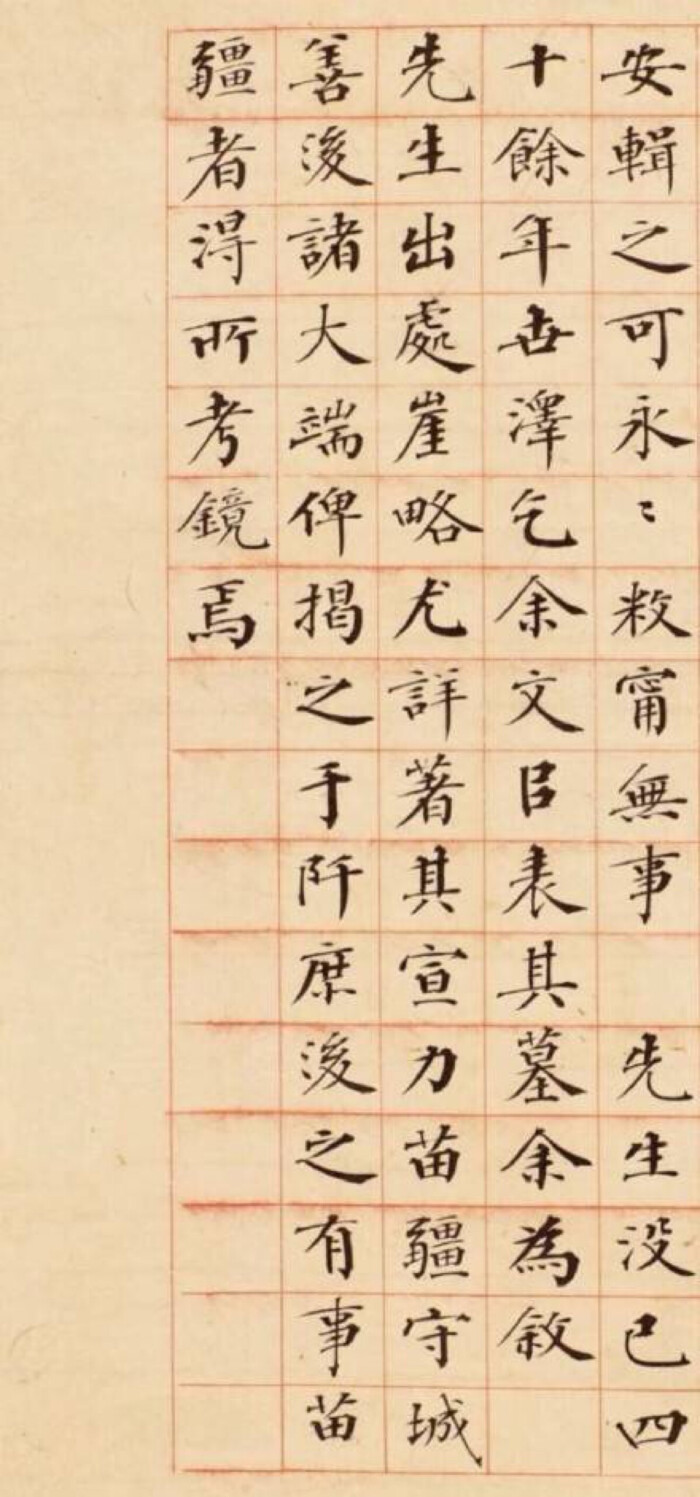 安輯之可永〻敉甯無事 先生没已四
十餘年世澤乞余文㠯表其墓余為敘
先生出處崖略尤詳著其宣力苗疆守城
善後諸大端俾揭之于阡庶後之有事苗
疆者得所考鏡焉